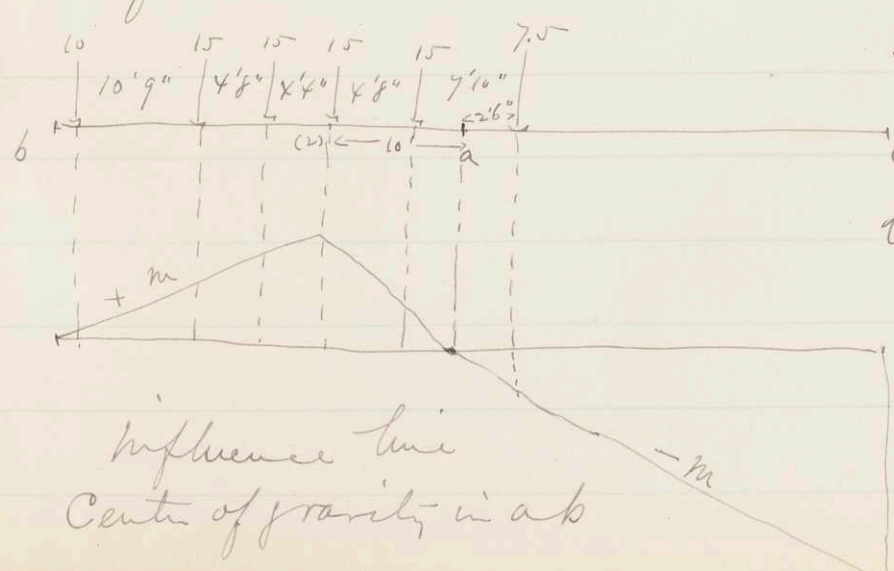 10 15 15 15 15 7.5
10'9" 4'8" 4'4" 4'8" 7'10"
<2'6">
b (2) <— 10 —> a
+ m
- m
Influence line
Center of gravity in ab